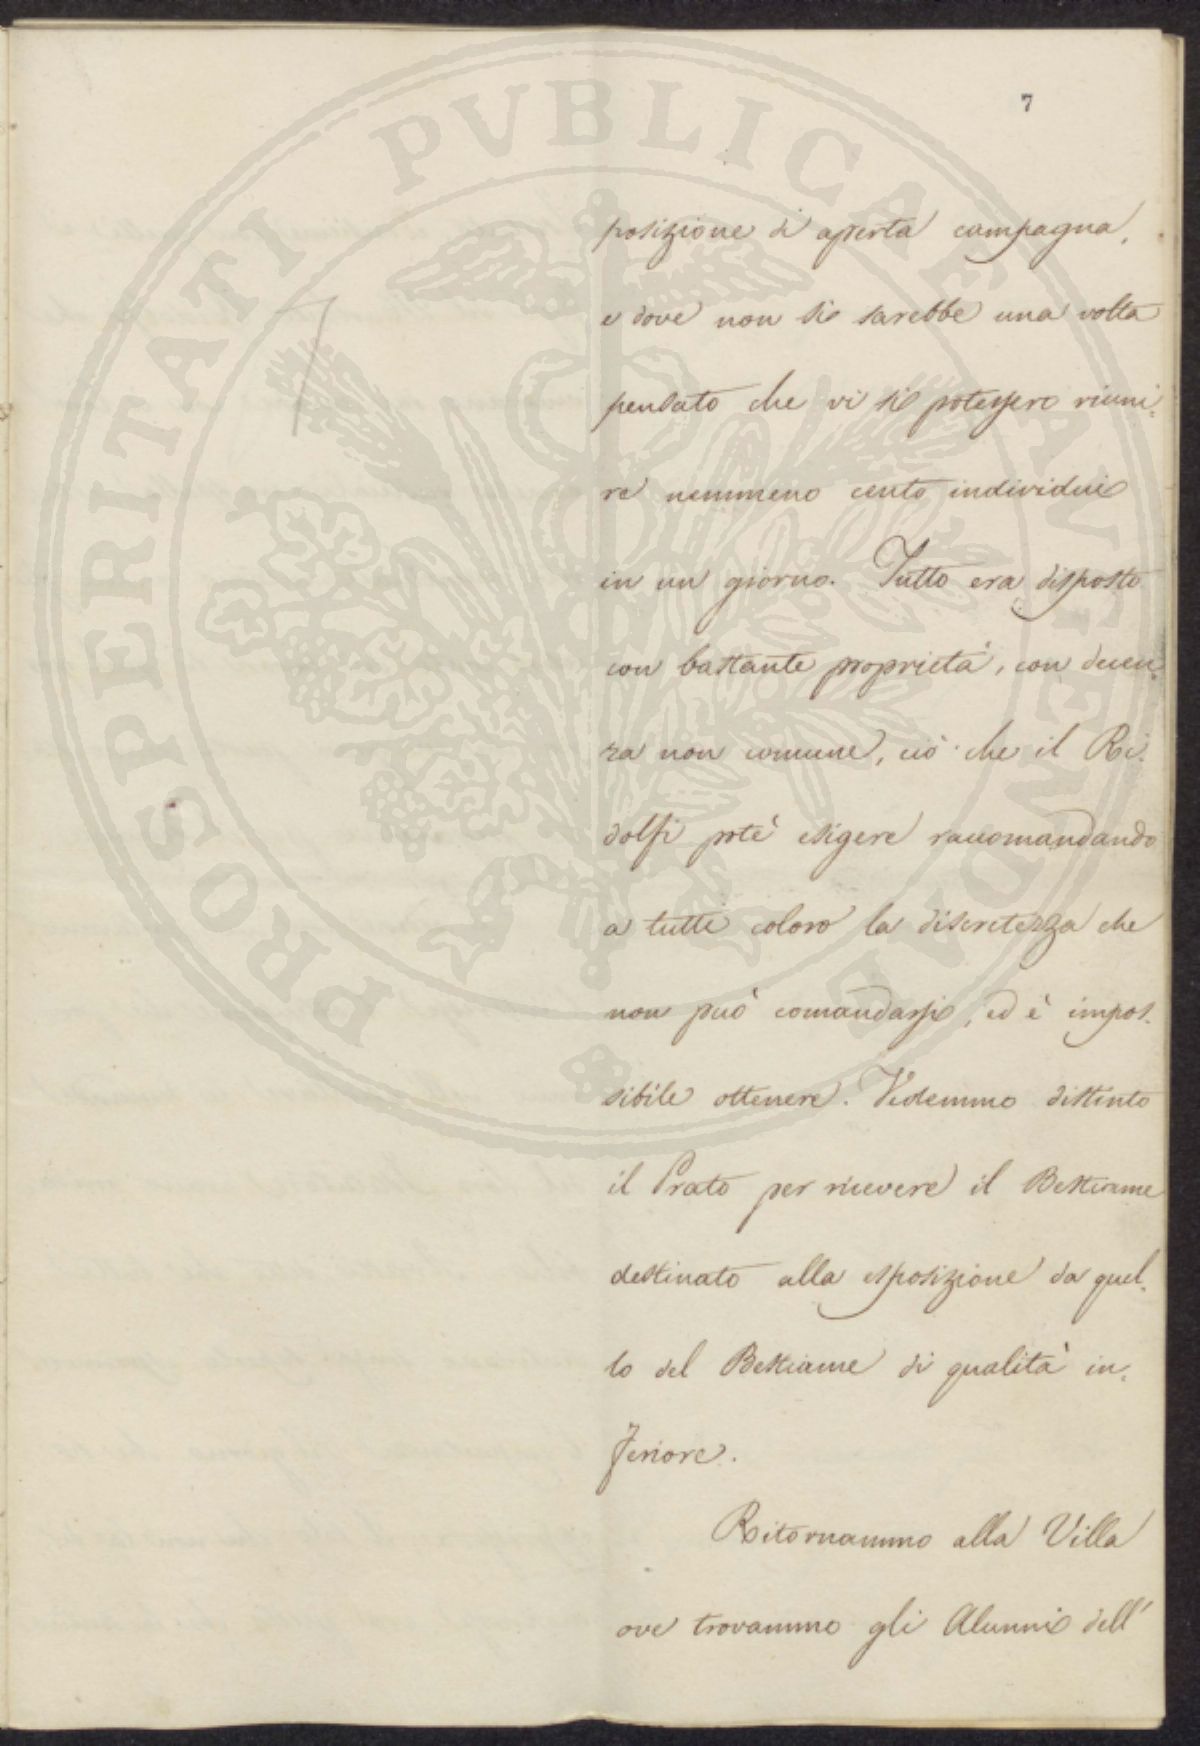 7
PROSPERITATI PVBLICAE AVGENDAE
7
posizione di aperta campagna,
e dove non si sarebbe una volta
pensato che vi si potessero riuni-
re nemmeno cento individui
in un giorno. Tutto era disposto
con bastante proprietà, con decen-
za non comune, ciò che il Ri-
dolfi potè esigere raccomandando
a tutti coloro la discretezza che
non può comandarsi, ed è impos-
sibile ottenere. Vedemmo distinto
il Prato per ricevere il Bestiame
destinato alla esposizione da quel-
lo del Bestiame di qualità in-
feriore.
Ritornammo alla Villa
ove trovammo gli Alunni dell'